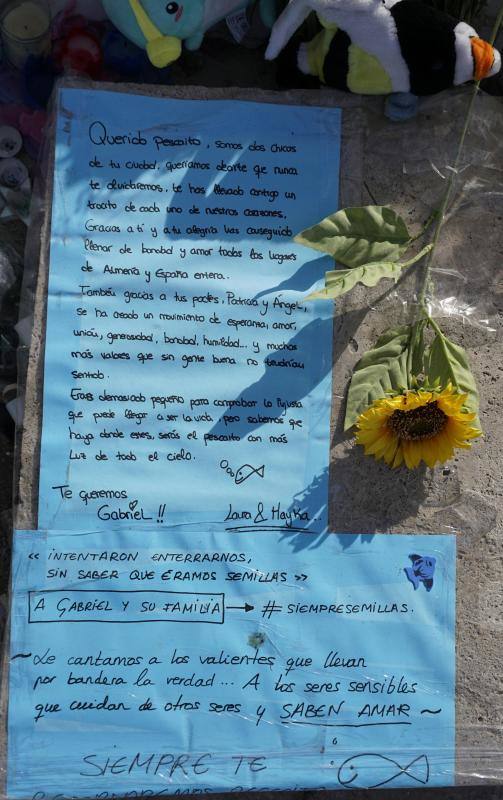 Querido pescaito, somos dos chicas
de tu ciudad, queríamos decirte que nunca
te olvidaremos, te has llevado contigo un
trocito de cada uno de nuestros corazones.
Gracias a ti y a tu alegría has conseguido
llenar de bondad y amor todos los lugares
de Almería y España entera.
También gracias a tus padres, Patricia y Ángel,
se ha creado un movimiento de esperanza, amor,
unión, generosidad, bondad, humildad... y muchos
más valores que sin gente buena no tendrían
sentido.
Eras demasiado pequeño para comprobar lo injusta
que puede llegar a ser la vida, pero sabemos que
haya donde estés, serás el pescaito con más
luz de todo el cielo.
Te queremos
Gabriel !!
Laura & Mayka...
<< INTENTARON ENTERRARNOS,
SIN SABER QUE ERAMOS SEMILLAS >>
A GABRIEL Y SU FAMILIA → # SIEMPRESEMILLAS.
~Le cantamos a los valientes que llevan
por bandera la verdad... A los seres sensibles
que cuidan de otros seres y SABEN AMAR ~
SIEMPRE TE